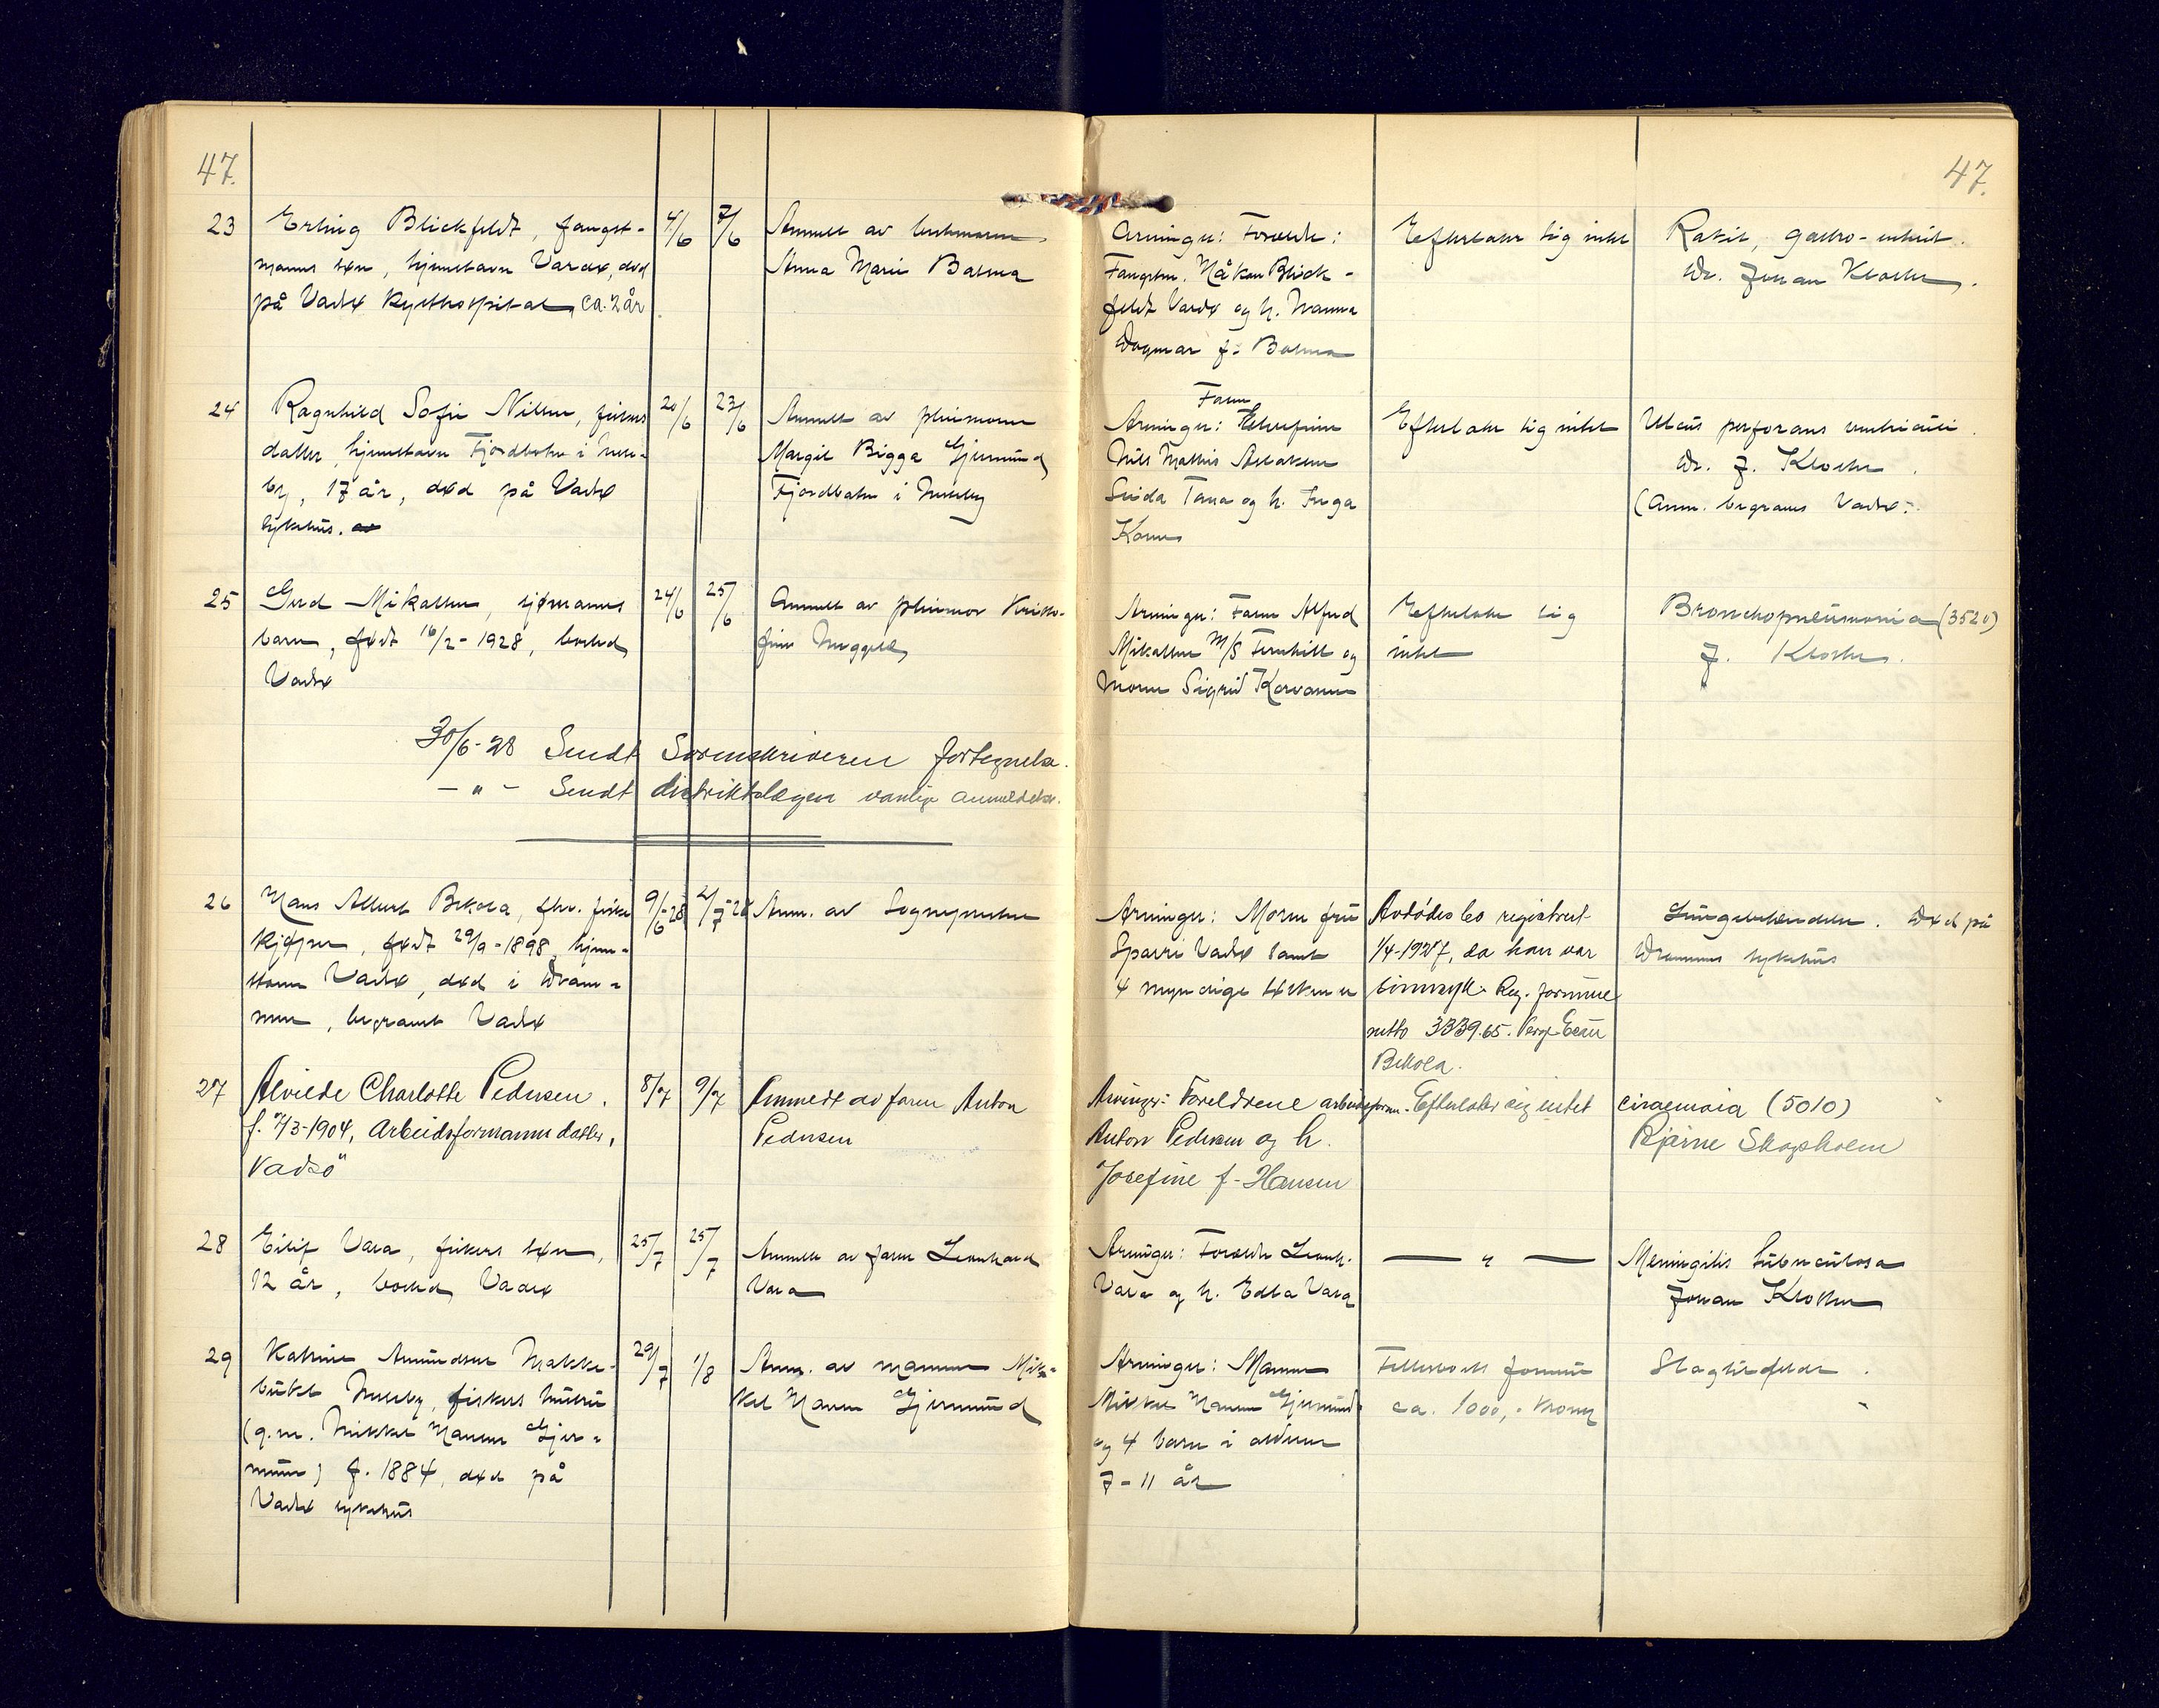 47.
47.
23 Erling Blickfeldt, fangst-
manns søn, hjemstavn Vardø, død
på Vadsø kysthospital, ca. 2 år
4/6 7/6
Anmeldt av bestemoren
Anna Marie Balma
Arvinger: Foreldre:
Fangstm. Håkon Blick-
feldt Vardø og h. Hanna
Dagmar f. Balma
Efterlater sig intet
Rakit, gastro-enterit.
Dr. Johan Kloster.
24 Ragnhild Sofie Nilsen, fiskers
datter, hjemstavn Fjordbotn i Nesse-
by, 17 år, død på Vadsø
sykehus.
20/6 23/6
Anmeldt av pleiemoren
Margit Bigga Gjermund
Fjordbotn i Nesseby
Faren
Arvinger:
Nils Mathis Aslaksen
Tana og h. Inga
Efterlater sig intet
Ulcus perforans ventriculi.
Dr. J. Kloster.
(Anm. begraves Vadsø.
25 Gerd Mikalsen, sjømanns
barn, født 16/2-1928, bosted
Vadsø
24/6 25/6
Anmeldt av pleiemor Kristo-
fine
Arvinger: Faren Alfred
Mikalsen M/S Fernhill og
moren Sigrid
Efterlater sig
intet
Bronchopneumonia (3520)
J. Kloster.
30/6-28 Sendt Sorenskriveren fortegnelse.
— " — Sendt distriktslægen vanlige anmeldelse.
26 Hans Albert Bekola, fhv. fiske
kjøper, født 29/9-1898, hjem-
stavn Vadsø, død i Dram-
men, begravet Vadsø
9/6-28 2/7-28
Anm. av Sognepresten
Arvinger: Moren fru
Vadsø samt
4 myndige søsken
Avdødes bo registrert
1/4-1927, da han var
sinnsyk. Reg. formue
netto 3339.65. Verge
Bekola.
Lungebetendelse. Død på
Drammens sykehus
27 Alvilde Charlotte Pedersen.
f. 7/3-1904, Arbeidsformanns datter,
Vadsö
8/7 9/7
Anmeldt av faren Anton
Pedersen
Arvinger: Foreldrene arbeidsform.
Anton Pedersen og h.
Josefine f. Hansen
Efterlater sig intet
(5010)
Bjarne Skogsholm
28 Eilif Vara, fiskers søn,
12 år, bosted Vadsø
25/7 25/7
Anmeldt av faren Leonhard
Vara
Arvinger: Foreldre Leonh.
Vara og h. Edla Vara
— " —
Meningitis tuberculosa
Johan Kloster
29 Katrine Amundsen Makke-
Nesseby, fiskers hustru
(g.m. Mikkel Hansen Gjer-
mund) f. 1884, død på
Vadsø sykehus
29/7 1/8
Anm. av mannen Mik-
kel Hansen Gjermund
Arvinger: Mannen
Mikkel Hansen Gjermund
og 4 barn i alderen
7-11 år
Fellesboets formue
ca. 1000,- kroner
Slagtilfelde.